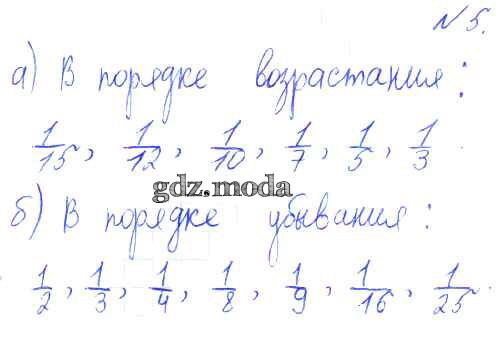 № 5.
а) В порядке возрастания:
1/15, 1/12, 1/10, 1/7, 1/5, 1/3.
gdz.moda
б) В порядке убывания:
1/2, 1/3, 1/4, 1/8, 1/9, 1/16, 1/25.